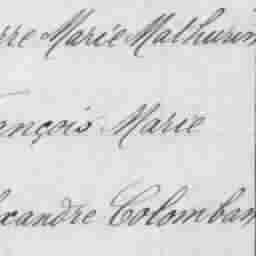 rre Marie Mathurin
ançois Marie
exandre Colomban